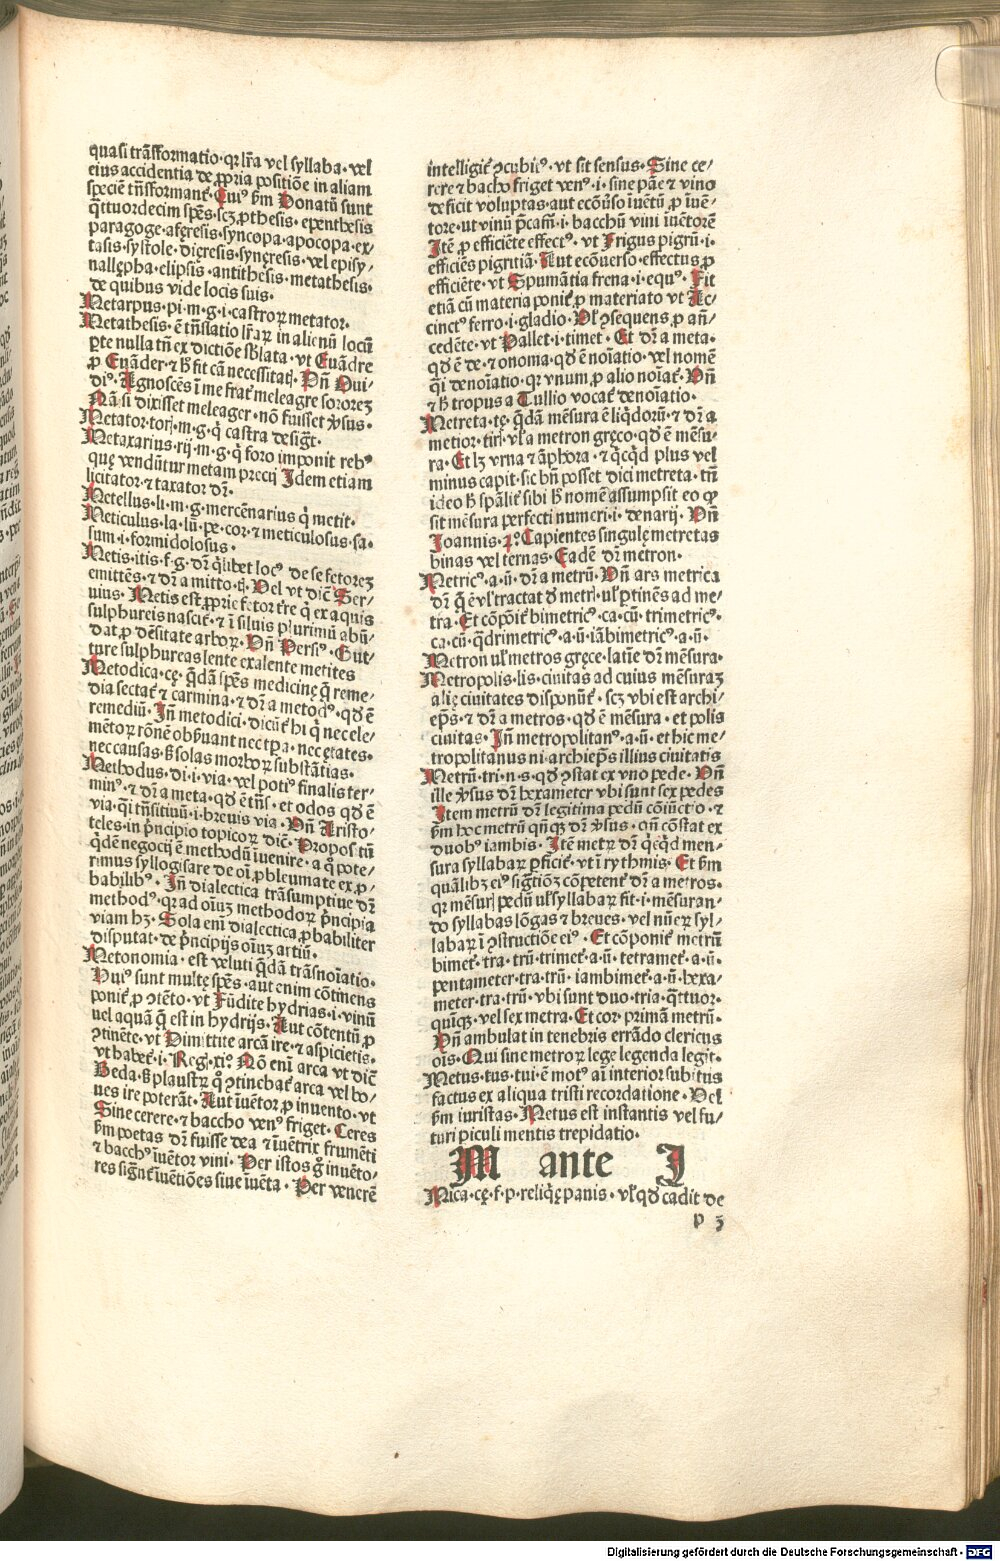 quasi trãsformatio·qr lr̃a vel syllaba·vel
eius accidentia de ꝓpria positiõe in aliam
speciẽ tñsformant᷑·Huiꝰ ẜm Donatũ sunt
q̃ttuordecim spẽs·scꝫ ꝓthesis·epenthesis
paragoge·aferesis·syncopa·apocopa·ex/
tasis·systole·dieresis·syneresis·vel episy/
nalępha·elipsis·antithesis·metathesis·
de quibus vide locis suis·
Metarpus·pi·m·g·i·castroꝝ metator·
Metathesis·ẽ tñslatio lr̃aꝝ in alienũ locũ
ꝑte nulla tñ ex dictiõe sblata·vt Euãdre
ꝓ Euãder·⁊ h̃ fit cã necessitatꝭ·Vñ Oui/
diꝰ·Agnoscẽs ĩ me frat᷑ meleagre sororeꝫ
Nã si dixisset meleager·nõ fuisset v̉sus·
Metator·torꝭ·m·g·q̇ castra desigt᷑·
Metaxarius·rij·m·g·q̇ foro imponit rebꝰ
quę vendũtur metam precij Idem etiam
licitator ⁊ taxator dr̃·
Metellus·li·m·g·mercẽnarius q̇ metit·
Meticulus·la·lũ·pe·cor·⁊ meticulosus·sa·
sum·i·formidolosus·
Metis·itis·f·g·dr̃ q̇libet locꝰ de se fetoreꝫ
emittẽs·⁊ dr̃ a mitto·tꝭ·Vel vt dic̃ Ser/
uius·Metis est ꝓprie fetor t̃re q̇ ex aquis
sulphureis nascit᷑·⁊ ĩ siluis plurimũ abũ/
dat ꝓ dẽsitate arboꝝ·Vñ Persiꝰ·Gut/
ture sulphureas lente exalente metites
Metodica·cę·q̃dã spẽs medicinę q̃ reme/
dia sectat᷑ ⁊ carmina·⁊ dr̃ a metodꝰ·qđ ẽ
remediũ·Iñ metodici·dicũt᷑ hi q̇ nec ele/
mẽtoꝝ rõnẽ obẜuant nec tꝑa·nec ętates·
nec causas·ẜ solas morboꝝ substãtias·
Methodus·di·i·via·vel potiꝰ finalis ter/
minꝰ·⁊ dr̃ a meta·qđ ẽ tñs·et odos qđ ẽ
via·q̇i tñsitiuũ·i·breuis via·Vñ Aristo/
teles·in p̃ncipio topicoꝝ dic̃·Propositũ
q̇dẽ negocij ẽ methodũ ĩuenire·a q̊ pote/
rimus syllogisare de oĩ ꝓbleumate ex ꝓ/
babilibꝰ·Iñ dialectica trãsumptiue dr̃
methodꝰ·qr ad oĩuꝫ methodoꝝ p̃ncipia
viam hꝫ·Sola enĩ dialectica ꝓbabiliter
disputat·de p̃ncipijs oĩuꝫ artiũ·
Metonomia·est veluti q̃dã trãsnoĩatio·
Huiꝰ sunt multę spẽs·aut enim cõtinens
ponit᷑ ꝓ ꝯtẽto·vt Fũdite hydrias·i·vinũ
vel aquã q̃ est in hydrijs·Aut cõtentũ ꝓ
ꝯtinẽte·vt Dimittite arcã ire·⁊ aspicietis·
vt habet᷑·i·Reg·xiꝰ Nõ enĩ arca vt dic̃
Beda·ẜ plaustꝝ q̊ ꝯtinebat᷑ arca vel bo/
ues ire poterãt·Aut ĩuẽtor ꝓ invento·vt
Sine cerere·⁊ baccho venꝰ friget·Ceres
ẜm poetas dr̃ fuisse dea ⁊ ĩuẽtrix frumẽti
⁊ bacchꝰ ĩuẽtor vini·Per istos g̊ inuẽto/
res sigñt᷑ ĩuẽtiões siue ĩuẽta·Per venerẽ
intelligit᷑ ꝯcubitꝰ·vt sit sensus·Sine ce/
rere ⁊ bacho friget venꝰ·i·sine pãe ⁊ vino
deficit voluptas·aut ecõũso ĩuẽtũ ꝓ ĩuẽ/
tore·ut vinũ p̃cam̃·i·bacchũ vini ĩuẽtorẽ
Itẽ ꝓ efficiẽte effectꝰ·vt Frigus pigrũ·i·
efficiẽs pigritiã·Aut ecõuerso·effectus ꝓ
efficiẽte·vt Spumãtia frena·i·equꝰ·Fit
etiã cũ materia ponit᷑ ꝓ materiato vt Ac/
cinctꝰ ferro·i·gladio·Vl̃ ꝯsequens ꝓ añ/
cedẽte·vt Pallet·i·timet·Et dr̃ a meta·
qđ ẽ de·⁊ onoma·qđ ẽ noĩatio·vel nomẽ
q̇i denoĩatio·qr vnum ꝓ alio noĩat᷑·Vñ
⁊ h̃ tropus a Tullio vocat᷑ denoĩatio·
Metreta·tę·q̃dã mẽsura ẽ liq̇dorũ·⁊ dr̃ a
metior·tirꝭ·vl̃ a metron gręco·qđ ẽ mẽsu/
ra·Et lꝫ vrna ⁊ ãphora·⁊ q̇cq̇d plus vel
minus capit·sic bñ posset dici metreta·tñ
ideo h̃ sp̃alit᷑ sibi h̃ nomẽ assumpsit eo ꝙ
sit mẽsura perfecti numeri·i·denarij·Vñ
Joannis·2º·Capientes singulę metretas
binas vel ternas·Eadẽ dr̃ metron·
Metricꝰ·a·ũ·dr̃ a metrũ·Vñ ars metrica
dr̃ q̃ ẽ vl̃ tractat đ metrꝭ·vl̃ ꝑtinẽs ad me/
tra·Et cõpõit᷑ bimetricꝰ·ca·cũ·trimetricꝰ·
ca·cũ·q̃drimetricꝰ·a·ũ·iãbimetricꝰ·a·ũ·
Metron ul̃ metros gręce·latĩe dr̃ mẽsura·
Metropolis·lis·ciuitas ad cuius mẽsuraꝫ
alię ciuitates disponũt᷑·scꝫ vbi est archi/
ep̃s·⁊ dr̃ a metros·qđ ẽ mẽsura·et polis
ciuitas·Iñ metropolitanꝰ·a·ũ·et hic me/
tropolitanus·ni·archiep̃s illius ciuitatis
Metrũ·tri·n·s·qđ ꝯstat ex vno pede·Vñ
ille v̉sus dr̃ hexameter vbi sunt sex pedes
Item metrũ dr̃ legitima pedũ cõiũctio·⁊
ẜm hoc metrũ qñqꝫ dr̃ v̉sus·qñ cõstat ex
duobꝰ iambis·Itẽ metꝝ dr̃ q̇cq̇d men/
sura syllabaꝝ ꝑficit᷑·vt ĩ rythmis·Et ẜm
quãlibꝫ eiꝰ sigt̃iõꝫ cõpetent᷑ dr̃ a metros·
qr mẽsurꝭ pedũ ul̃ syllabaꝝ fit·i·mẽsuran/
do syllabas lõgas ⁊ breues·vel nũeꝝ syl/
labaꝝ ĩ ꝯstructiõe eiꝰ·Et cõponit᷑ metrũ
bimet᷑·tra·trũ·trimet᷑·a·ũ·tetramet᷑·a·ũ·
pentameter·tra·trũ·iambimet᷑·a·ũ·hexa/
meter·tra·trũ·vbi sunt duo·tria·q̃ttuor·
quĩqꝫ·vel sex metra·Et cor·primã metrũ·
Vñ ambulat in tenebris errãdo clericus
ois·Qui sine metroꝝ lege legenda legit·
Metus·tus·tui·ẽ motꝰ aĩ interior subitus
factus ex aliqua tristi recordatione·Vel
ẜm iuristas·Metus est instantis vel fu/
turi piculi mentis trepidatio·
M ante I
Mica·cę·f·p·reliq̇ę panis·vl̃ qđ cadit de
p 3
Digitalisierung gefördert durch die Deutsche Forschungsgemeinschaft - DFG